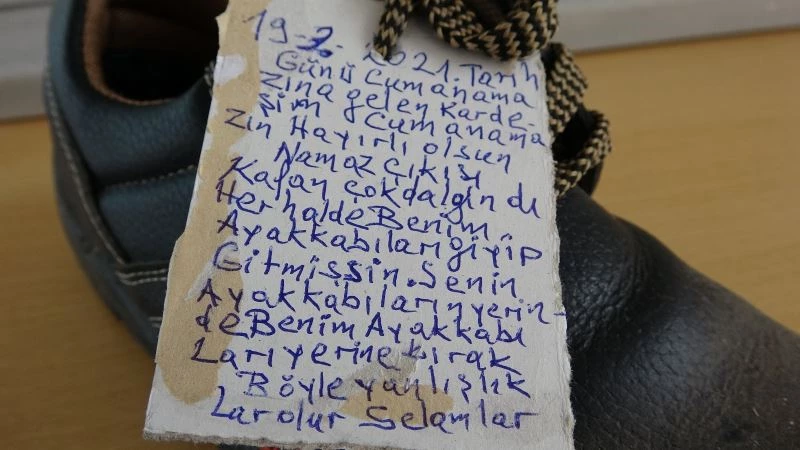 19-2-2021.Tarih
Günü Cumanama
zına gelen Karde-
şim Cumanama
Zın Hayırlı olsun
Namaz Çıkışı
Kafan çokdalgındı
HerhaldeBenim
Ayakkabılarıgiyip
Gitmişsin.Senin
Ayakkabılarınyerin-
deBenimAyakkabı
Larıyerine bırak
Böyleyanlışlık
Larolur Selamlar